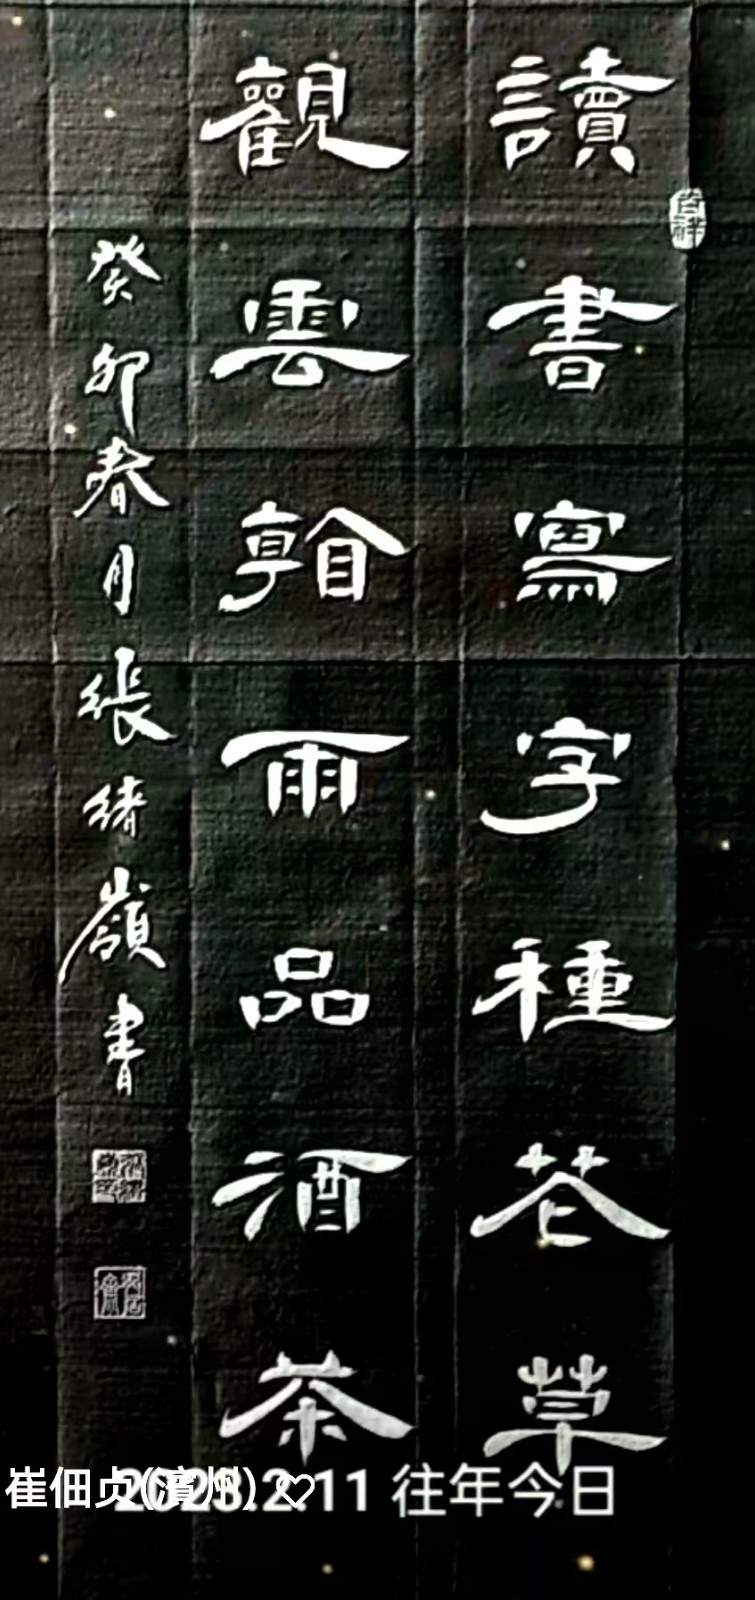 讀書寫字種花草
觀雲聽雨品酒茶
癸卯春月張緒嶺書
吉祥
崔佃贞(濱州) ♡
2023.2.11 往年今日